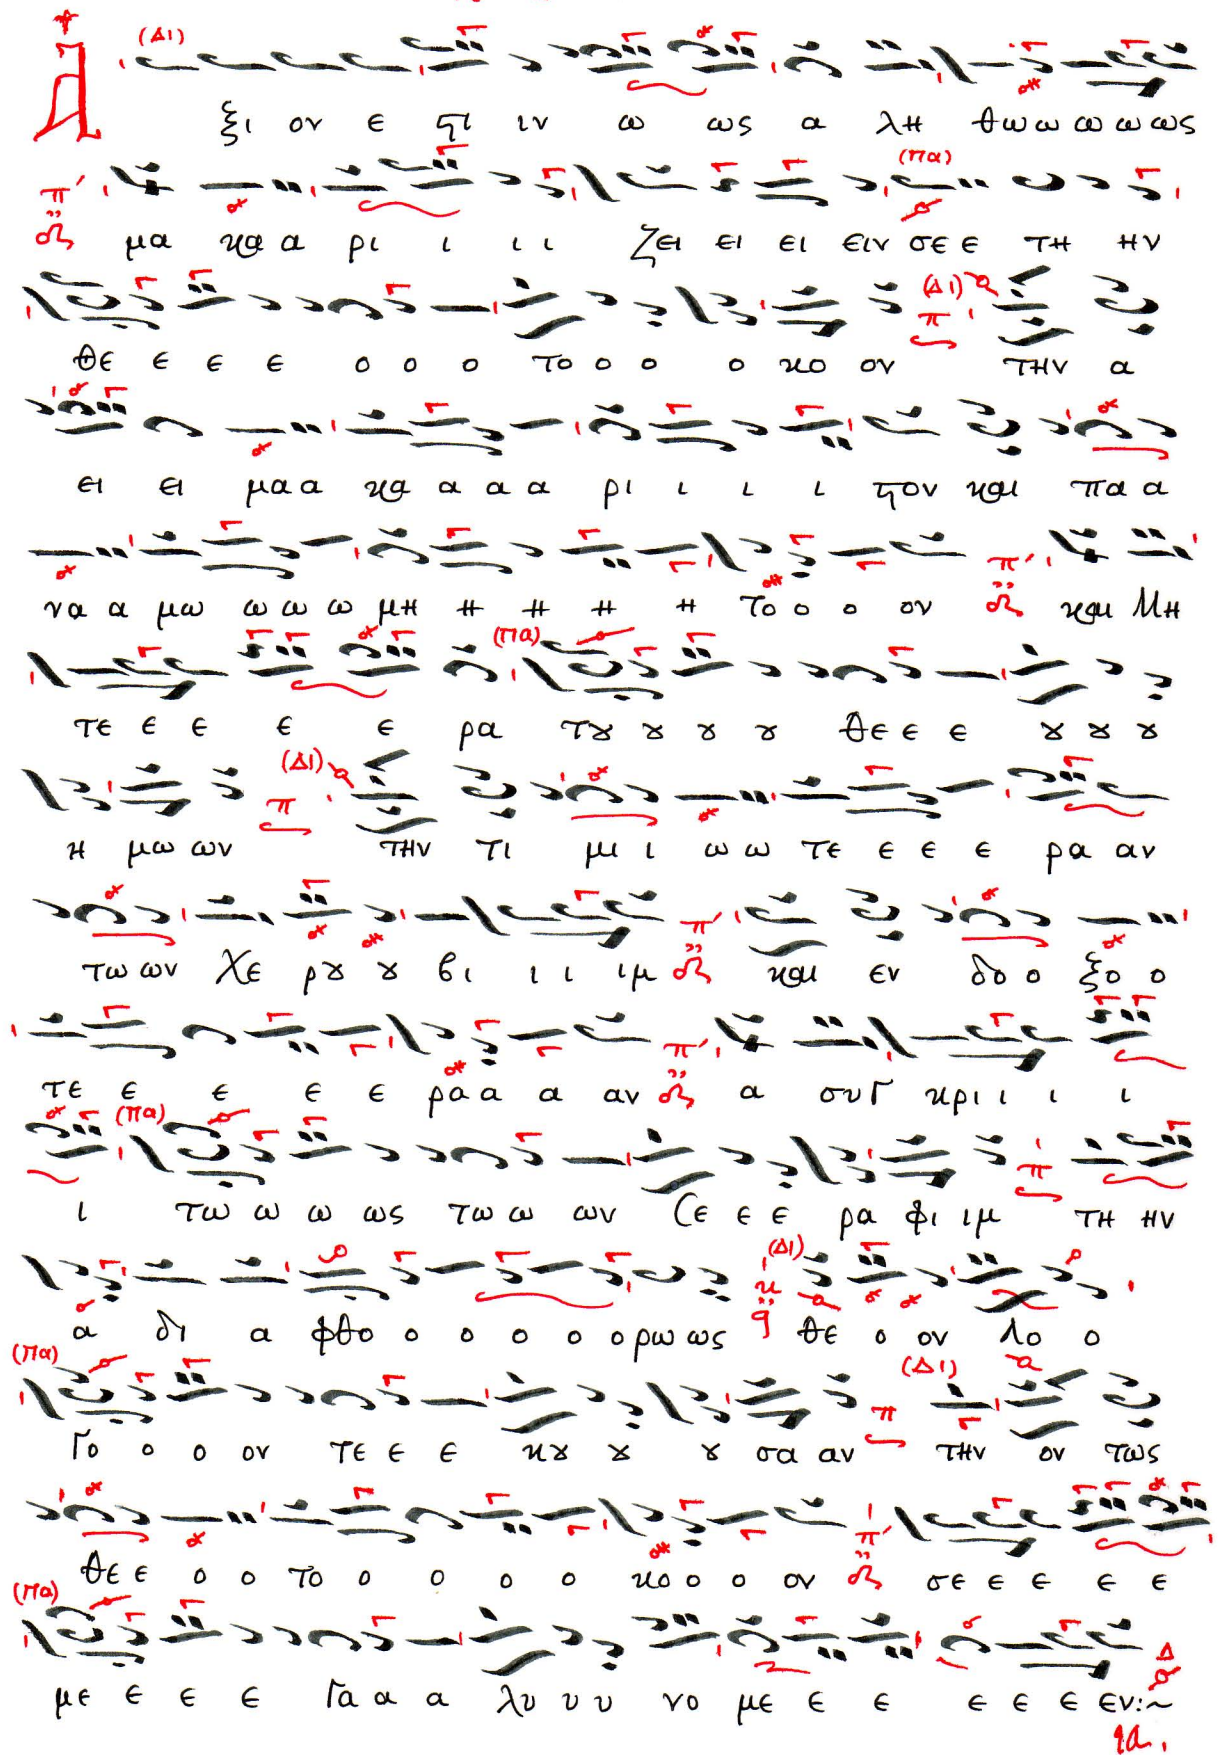 (Δι)
Α ξι ον ε ϛι ιν ω ως α λη θω ω ω ω ω ως
(Πα)
π΄ μα κα α ρι ι ι ι ζει ει ει ειν σε ε τη ην
(Δι)
θε ε ε ε ο ο ο το ο ο ο κο ον π την α
ει ει μα α κα α α α ρι ι ι ι ϛον και πα α
να α μω ω ω ω μη η η η η το ο ο ον π΄ και Μη
(Πα)
τε ε ε ε ε ρα τȣ ȣ ȣ ȣ θε ε ε ȣ ȣ ȣ
(Δι)
η μω ων π την τι μι ι ω ω τε ε ε ε ρα αν
τω ων Χε ρȣ ȣ βι ι ι ιμ π΄ και εν δο ο ξο ο
τε ε ε ε ε ρα α α αν π΄ α συγ κρι ι ι ι ι
(Πα)
ι τω ω ω ως τω ω ων Σε ε ε ρα φι ιμ π τη ην
(Δι)
α δι α φθο ο ο ο ο ο ρω ως κ θε ο ον Λο ο
(Πα) (Δι)
γο ο ο ον τε ε ε κȣ ȣ ȣ σα αν π την ον τως
θε ε ο ο το ο ο ο ο κο ο ο ον π΄ σε ε ε ε ε
(Πα)
με ε ε ε γα α α λυ υ υ νο με ε ε ε ε ε εν:~
Δ